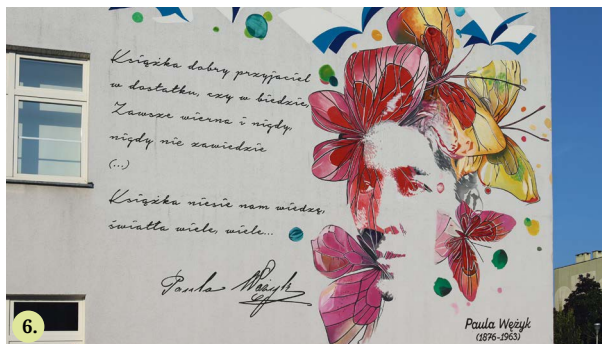 Książka dobry przyjaciel
w dostatku, czy w biedzie,
Zawsze wierna i nigdy,
nigdy nie zawiedzie
(...)
Książka niesie nam wiedzę,
światła wiele, wiele...
Paula Wężyk
Paula Wężyk
(1876-1963)
6.